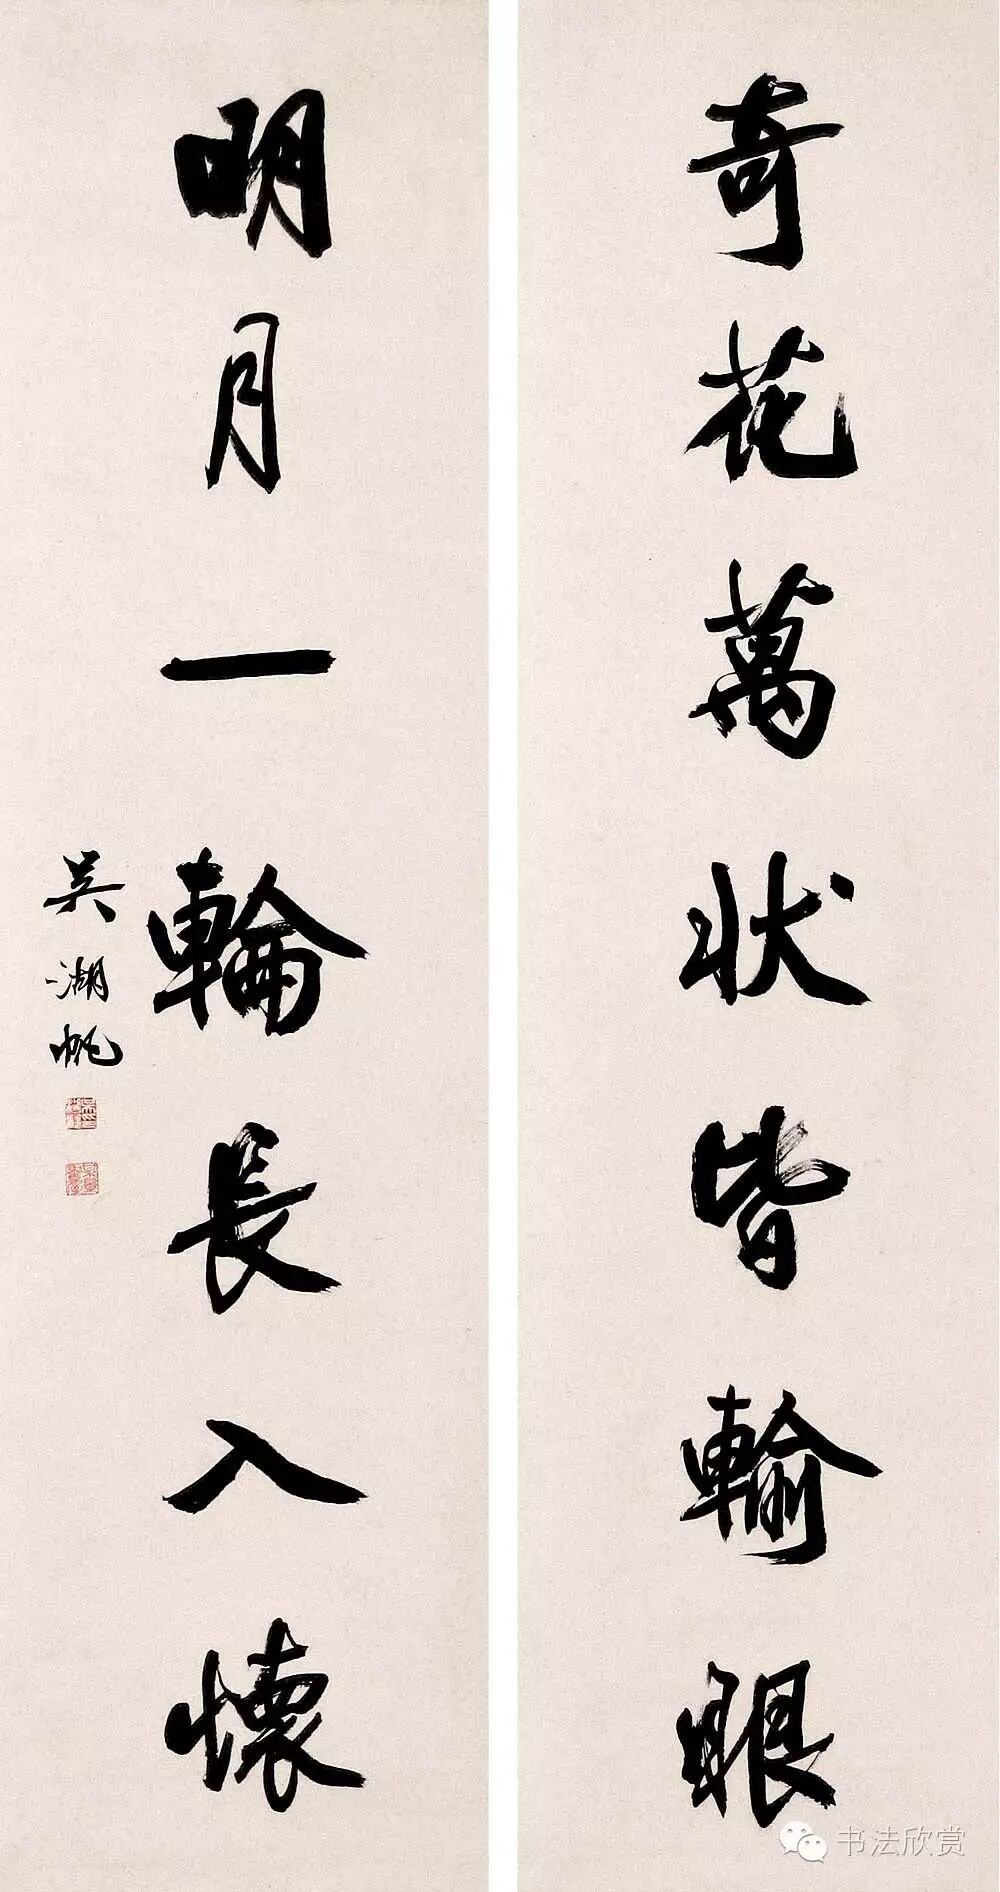 奇花萬狀皆輸眼
明月一輪長入懷
吳湖帆
书法欣赏